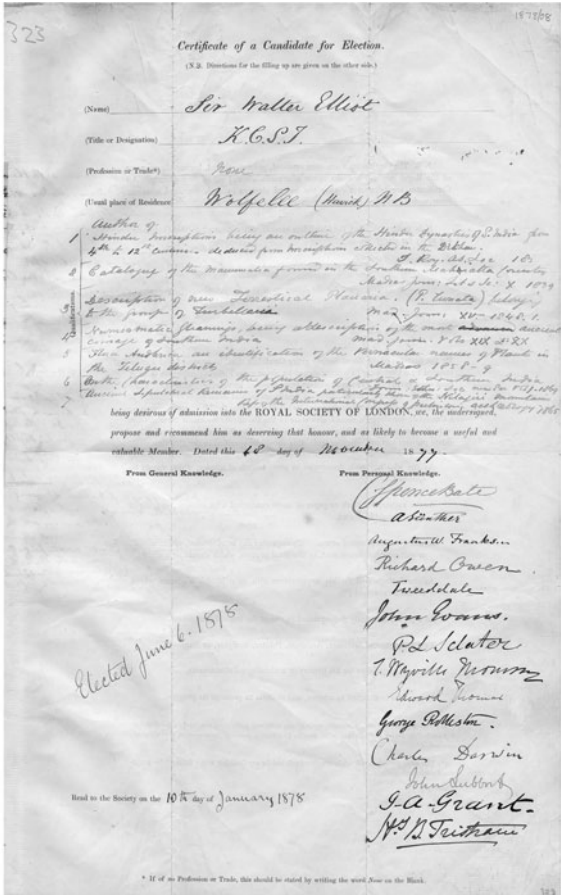 323
1878/08
Certificate of a Candidate for Election.
(N.B. Directions for the filling up are given on the other side.)
(Name) Sir Walter Elliot
(Title or Designation) K.C.S.I.
(Profession or Trade*) None
(Usual place of Residence Wolfelee (Hawick) N B
Qualifications
Author of
1 Hindu Inscriptions being an outline of the Hindu Dynasties of S. India from
4th to 12th deduced from Inscriptions collected in the
J. Roy. As. Soc 18
2 Catalogue of the Mammalia found in the Southern Mahratta Country
Madras Jour: X 1839
3 Description of new Terrestrial Planaria. belong
to the group of Turbellaria Mad: Journ: XV 1848.
4 Numismatic Gleanings, being a description of the most ancient
coinage of Southern India Mad. Journ.
5 Flora Andhrica an identification of the Vernacular names of Plants in
the Telugu districts Madras 1858-9
6 On the Characteristics of the population of Central & Southern India
7 Ancient Sepulchral Remains of S India particularly those of the Nilagiri Mountains
International Congress of Prehistoric Archaeology
being desirous of admission into the ROYAL SOCIETY OF LONDON, we, the undersigned,
propose and recommend him as deserving that honour, and as likely to become a useful and
valuable Member. Dated this day of November 1877.
From General Knowledge.
From Personal Knowledge.
C Spence Bate
A Günther
Augustus W. Franks
Richard Owen
Tweeddale
John Evans.
P L Sclater
C. Wyville Thomson
Edward Thomas
George Rolleston.
Charles Darwin
John Lubbock
J-A-Grant-
H. B. Tristram
Elected June 6. 1878
Read to the Society on the 10th day of January 1878
* If of no Profession or Trade, this should be stated by writing the word None on the Blank.